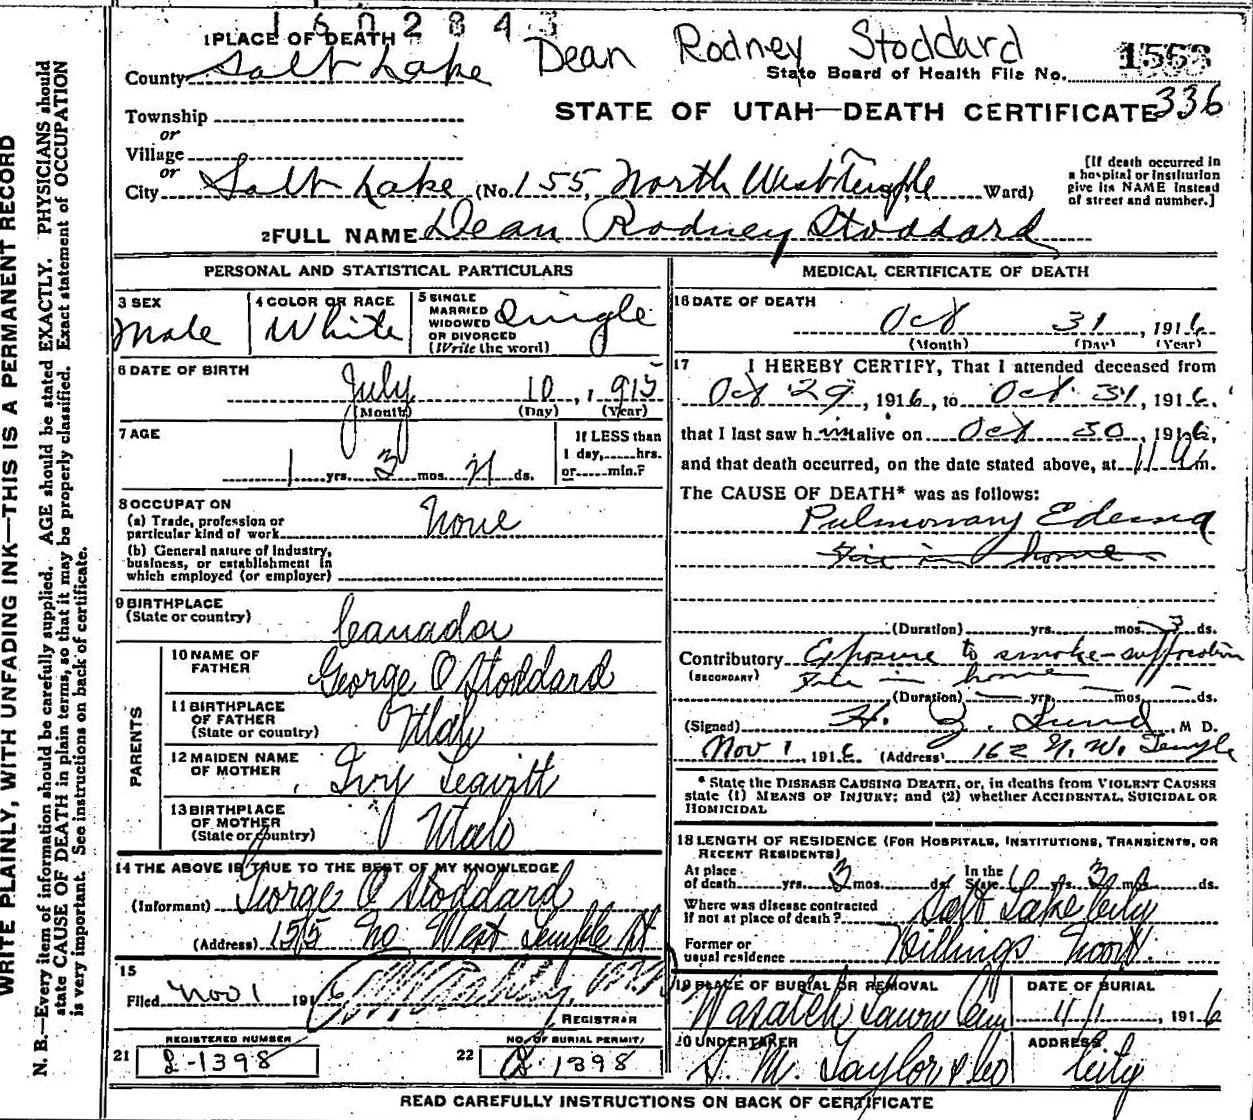 1502843
1 PLACE OF DEATH
Dean Rodney Stoddard
County Salt Lake
State Board of Health File No. 1553
STATE OF UTAH—DEATH CERTIFICATE 336
Township
or
Village
or
City Salt Lake (No. 155, North West Temple Ward)
[If death occurred in a hospital or institution give its NAME instead of street and number.]
2 FULL NAME Dean Rodney Stoddard
PERSONAL AND STATISTICAL PARTICULARS
3 SEX
Male
4 COLOR OR RACE
White
5 SINGLE
MARRIED
WIDOWED
OR DIVORCED
(Write the word)
Single
6 DATE OF BIRTH
July 10, 1915
(Month) (Day) (Year)
7 AGE
1 yrs. 3 mos. 21 ds.
If LESS than
1 day, hrs.
or min.?
8 OCCUPATION
(a) Trade, profession or
particular kind of work
None
(b) General nature of industry,
business, or establishment in
which employed (or employer)
9 BIRTHPLACE
(State or country)
Canada
PARENTS
10 NAME OF
FATHER
George O Stoddard
11 BIRTHPLACE
OF FATHER
(State or country)
Utah
12 MAIDEN NAME
OF MOTHER
Ivy Leavitt
13 BIRTHPLACE
OF MOTHER
(State or country)
Utah
14 THE ABOVE IS TRUE TO THE BEST OF MY KNOWLEDGE
(Informant) George O Stoddard
(Address) 155 No West Temple St
15
Filed Nov 1 1916
REGISTRAR
21 REGISTERED NUMBER
L-1398
22 NO. OF BURIAL PERMIT
1398
MEDICAL CERTIFICATE OF DEATH
16 DATE OF DEATH
Oct 31, 1916
(Month) (Day) (Year)
17 I HEREBY CERTIFY, That I attended deceased from
Oct 29, 1916, to Oct. 31, 1916.
that I last saw him alive on Oct 30, 1916,
and that death occurred, on the date stated above, at 11 a m.
The CAUSE OF DEATH* was as follows:
Pulmonary Edema
Fire in home
(Duration) yrs. mos. 3 ds.
Contributory Exposure to smoke-suffocation
(SECONDARY) Fire in home
(Duration) yrs. mos. ds.
(Signed) H. Z. Lund, M D.
Nov 1, 1916 (Address) 162 N. W. Temple
* State the DISEASE CAUSING DEATH, or, in deaths from VIOLENT CAUSES
state (1) MEANS OF INJURY; and (2) whether ACCIDENTAL, SUICIDAL OR
HOMICIDAL
18 LENGTH OF RESIDENCE (FOR HOSPITALS, INSTITUTIONS, TRANSIENTS, OR
RECENT RESIDENTS)
At place
of death yrs. 3 mos. ds.
In the
State yrs. 3 mos. ds.
Where was disease contracted
if not at place of death? Salt Lake City
Former or
usual residence Billings Mont.
19 PLACE OF BURIAL OR REMOVAL
Wasatch Lawn Cem
DATE OF BURIAL
11/1, 1916
20 UNDERTAKER
S. M. Taylor & Co
ADDRESS
City
READ CAREFULLY INSTRUCTIONS ON BACK OF CERTIFICATE
WRITE PLAINLY, WITH UNFADING INK—THIS IS A PERMANENT RECORD
N. B.—Every item of information should be carefully supplied. AGE should be stated EXACTLY. PHYSICIANS should
state CAUSE OF DEATH in plain terms, so that it may be properly classified. Exact statement of OCCUPATION
is very important. See instructions on back of certificate.